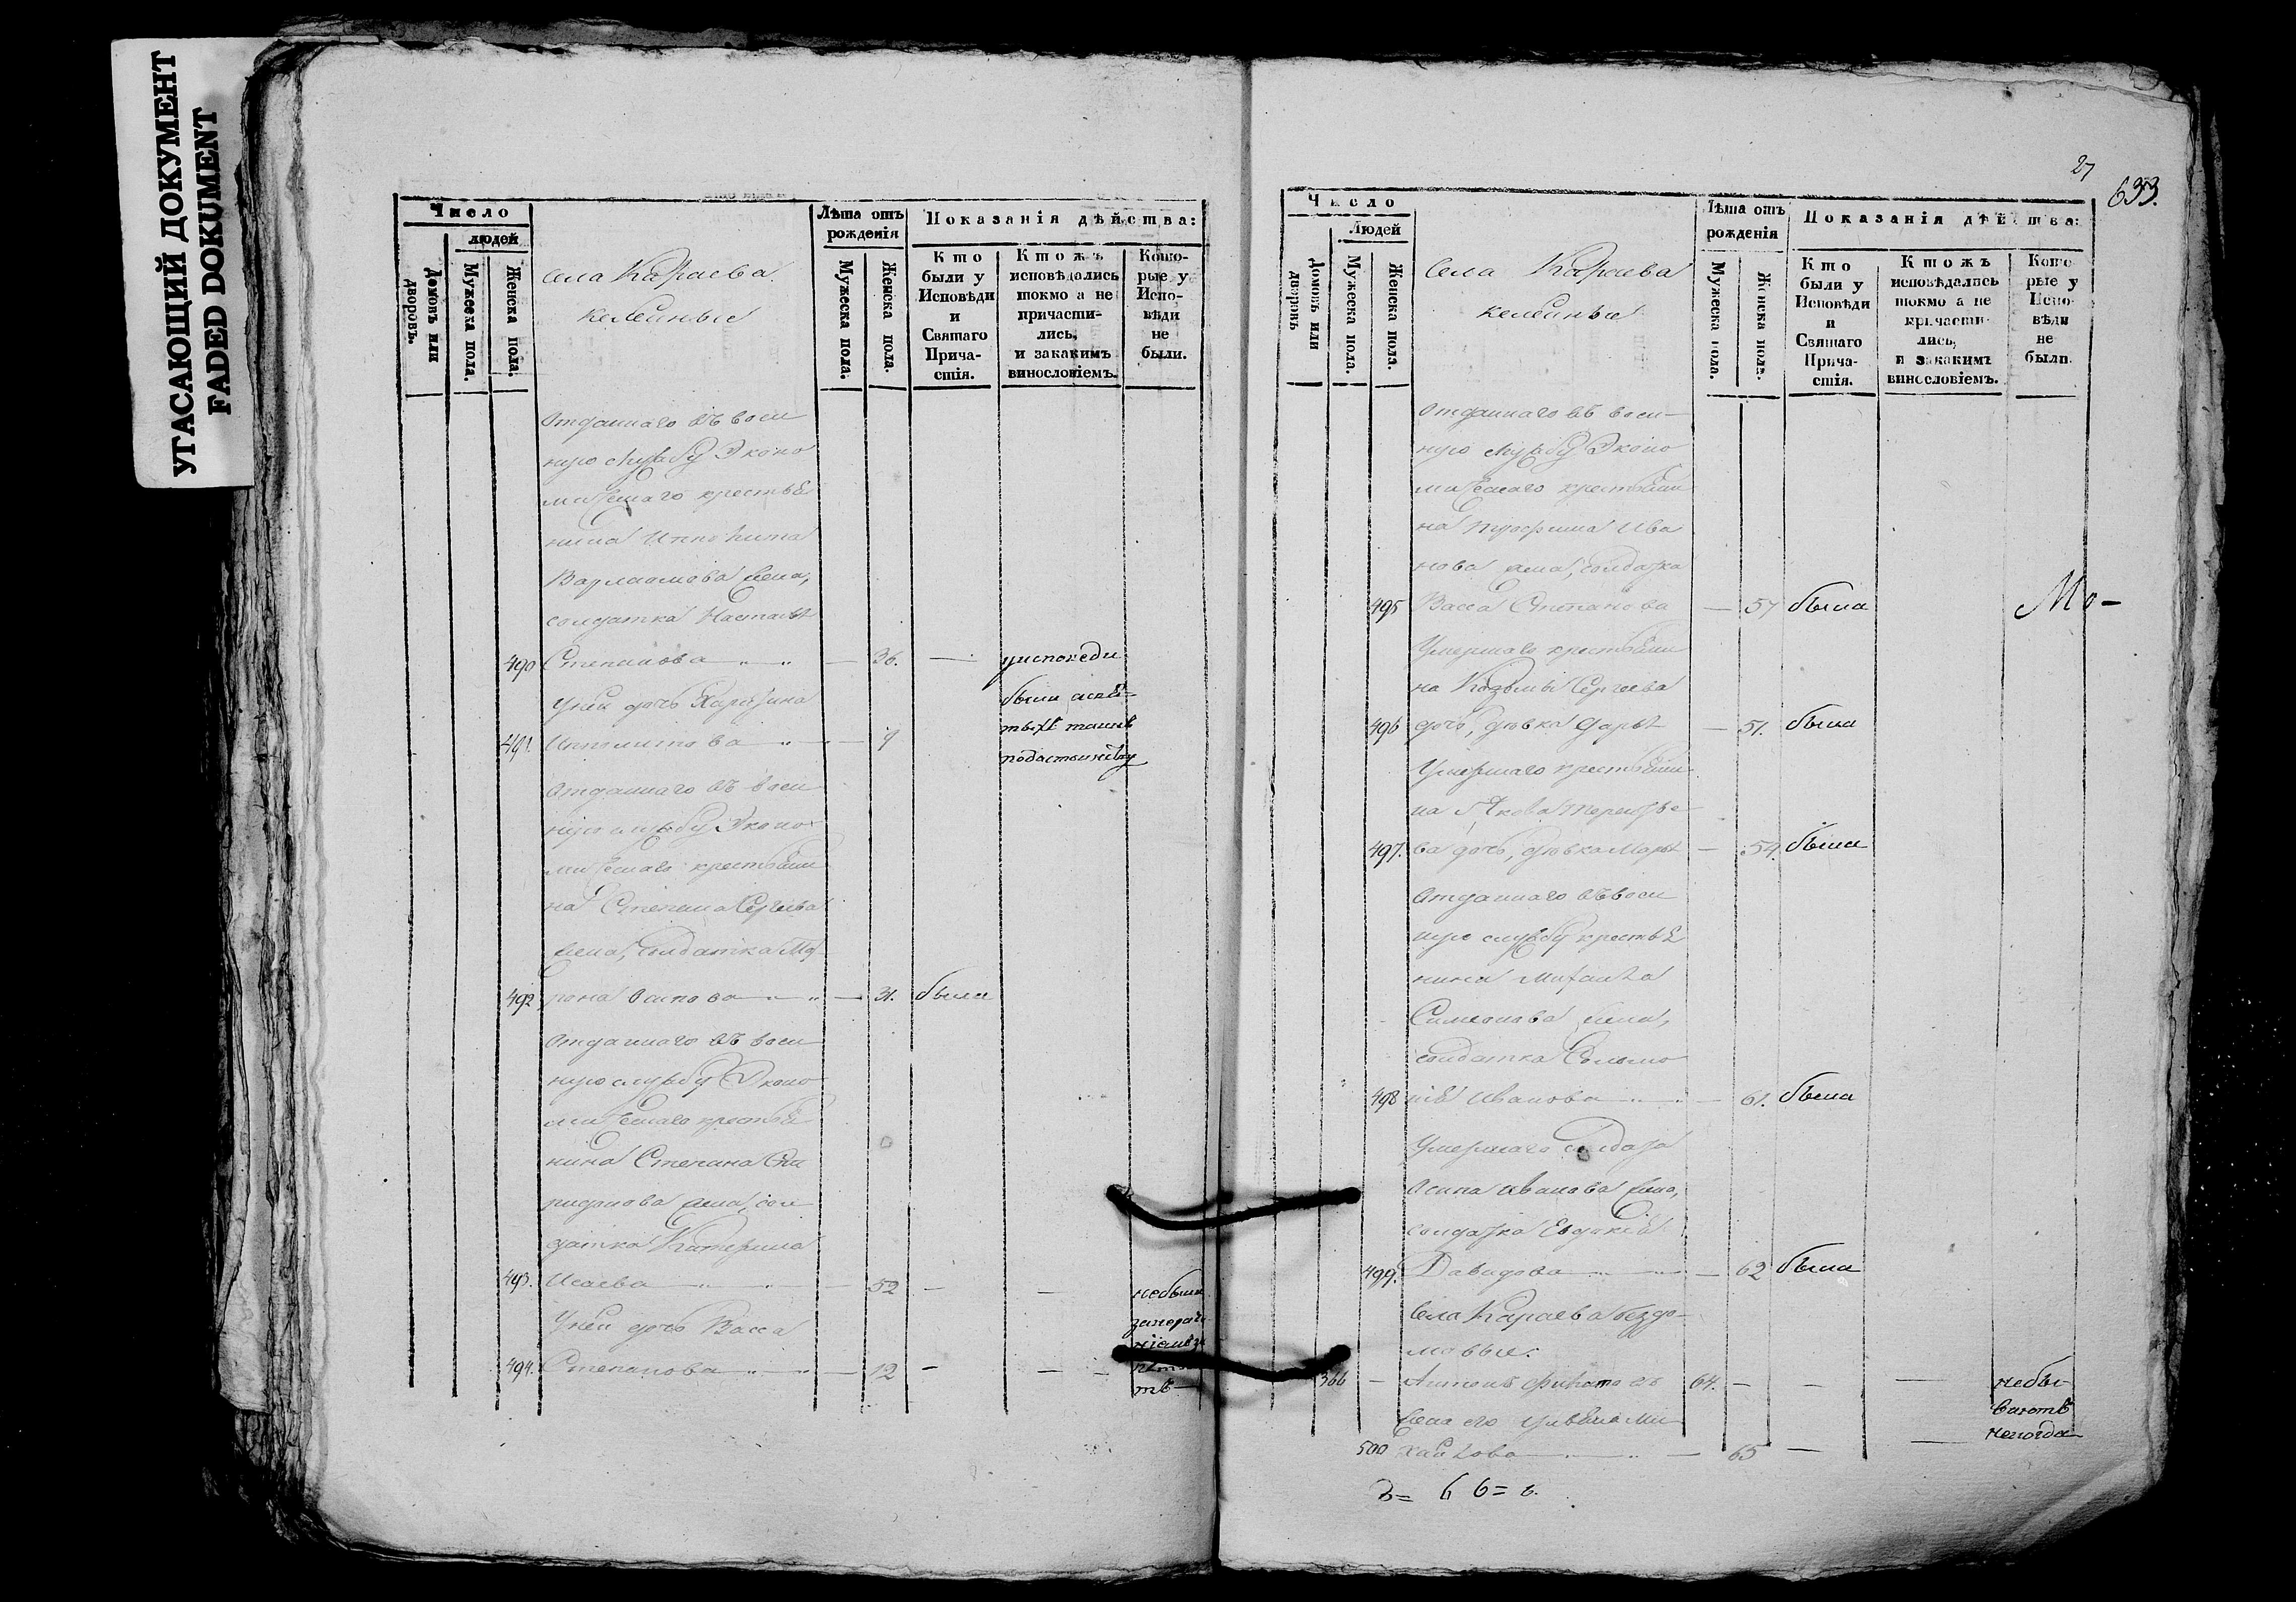 УГАСАЮЩИЙ ДОКУМЕНТ
FADED DOKUMENT
Число
людей
Домовъ или дворовъ.
Мужеска пола.
Женска пола.
села Караева
келейные
Лѣта отъ рожденія
Мужеска пола.
Женска пола.
Показанія дѣйства:
Кто были у Исповѣди и Святаго Причастія.
Ктожъ исповѣдались токмо а не причастились, и закакимъ винословіемъ.
Которые у Исповѣди не были.
Отданнаго въ воен
ную службу Эконо
мическаго крестья
нина Ипполита
Варлаамова жена,
солдатка Насталья
490 Степанова — 36. — у исповеди
были а свя
Унеи дочь Харитина
тыхъ таинъ
491. Ипполитова — 9
Отданнаго въ воен
ную службу Эконо
мическаго крестьяни
на Степана Сергеева
жена, солдатка Мат
рона Осипова
492 — 31. была
Отданнаго въ воен
ную службу Эконо
мическаго крестья
нина Степана Спи
ридонова жена, сол
датка Катерина
493. Исаева — 52 — — небыли
Унеи дочь Васса
494. Степанова — 12 — —
27
633.
Число
Людей
Домовъ или дворовъ
Мужеска пола.
Женска пола.
Села Караева
келейные
Лѣта отъ рожденія
Мужеска пола.
Женска пола.
Показанія дѣйства:
Кто были у Исповѣди и Святаго Причастія.
Ктожъ исповѣдались токмо а не причастились, и закакимъ винословіемъ.
Которые у Исповѣди не были.
Отданнаго въ воен-
ную службу Эконо
мическаго крестьяни
на Трофима Ива
нова жена, солдатка
495 Васса Степанова — 57 была
Мо-
Умершаго крестьяни
на Козьмы Сергеева
496 дочь, дѣвка Дарья — 51. была
Умершаго крестьяни-
на Якова Терентье
497. ва дочь, дѣвка Марья — 54. была
Отданнаго въ воен
ную службу крестья
нина Михаила
Симеонова жена,
солдатка Соломо
498 нія Иванова — 61. была
Умершаго солдата
Осипа Иванова жена,
солдатка Евдокія
499. Давидова — 62 была
Села Караева бездо-
мовые:
366 — Антонъ 64. — — — небы-
ваютъ
Жена его Ульяна Ми
никогда
500 хайлова — 65 — —